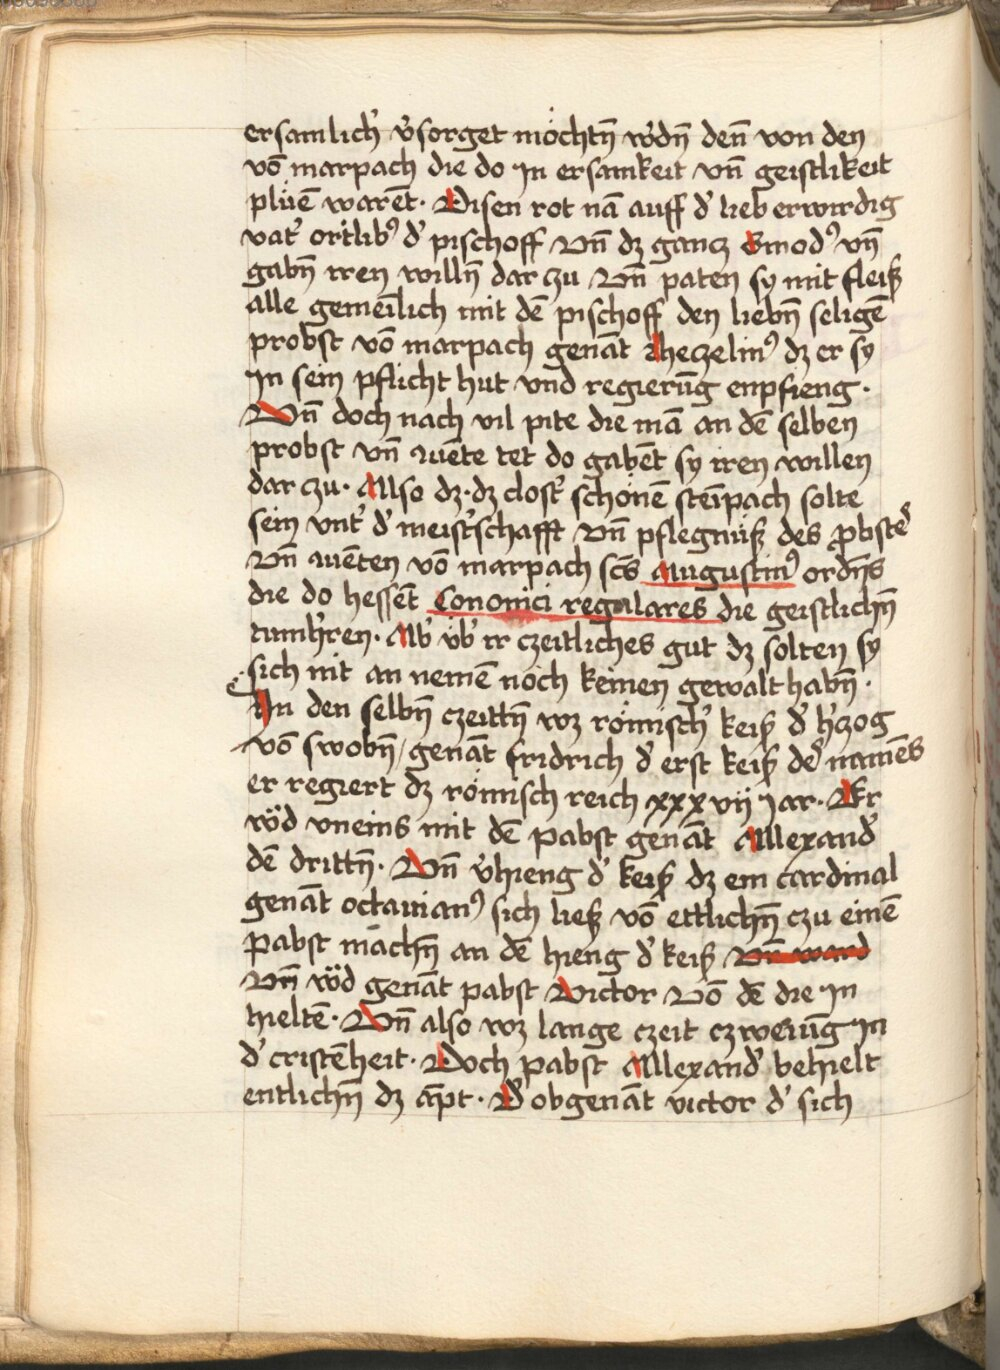 ersamlich' v'sorget möchtn̄ w'dn̄ den̄ von den
vō marpach die do jn ersamkeit vn̄ geistlikeit
plüē warēt. Disen rot nā auff d' lieb erwirdig
vat' ortlib9 d' pischoff vn̄ dz gancz Emod9 vn̄
gabn̄ iren willn̄ dar zu vn̄ paten sy mit fleiß
alle gemeīlich mit dē pischoff den liebn̄ seligē
probst vō marpach genāt Rhezelin9 dz er sy
jn sein pflicht hut vnd regierūg enpfieng.
Vn̄ doch nach vil pite die mā an dē selben
probst vn̄ auēte tet do gabēt sy iren willen
dar zu. Allso dz. dz clost' schönē steīpach solte
sein vnt' d' meist'schafft vn̄ pflegnüß des pbste'
vn̄ auēten vō marpach scs̄ Augustin9 ordn̄s
die do hessēt Cononici regulares die geistlichn̄
tumh'ren. Ab' üb' ir czeitliches gut dz solten sy
sich nit an nemē noch keinen gewalt habn̄.
An den selbn̄ czeittn̄ wz römisch' keiß' d' h'zog
vō swobn̄ / genāt fridrich d' erst keiß' de' namēs
er regiert dz römisch reich xxxvij jar. Er
w̎d vneins mit dē pabst genāt Allexand'
dē drittn̄. Vn̄ v'hieng d' keiß' dz ein cardinal
genāt octauian9 sich ließ vō ettlichn̄ czu einē
pabst machn̄ an dē hieng d' keiß' vn̄ ward
vn̄ w̎d genāt pabst Victor vō dē die jn
hieltē. Vn̄ also wz lange czeit czweiūg jn
d' cristēheit. Doch pabst Allexand' behielt
entlichn̄ dz āpt. D' obgenāt victor d' sich